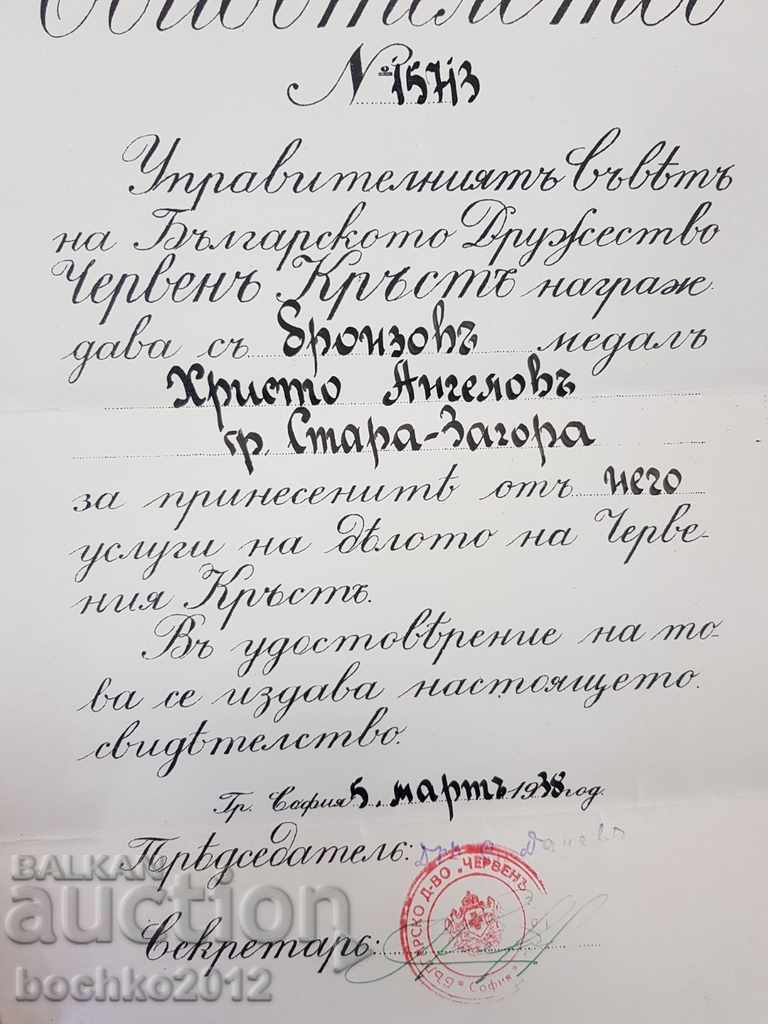 Свидетелство
№ 15713
Управителниятъ Съветъ
на Българското Дружество
Червенъ Кръстъ награж-
дава съ бронзовъ медалъ
Христо Ангеловъ
гр. Стара-Загора
за принесенитѣ отъ него
услуги на дѣлото на Черве-
ния Кръстъ.
Въ удостовѣрение на то-
ва се издава настоящето
свидѣтелство.
Гр. София 5. мартъ 1938 год.
Прѣдседатель: Даневъ
БЪЛГАРСКО Д-ВО „ЧЕРВЕНЪ
СОФИЯ
Секретарь:
BALKAN
auction
bochko2012